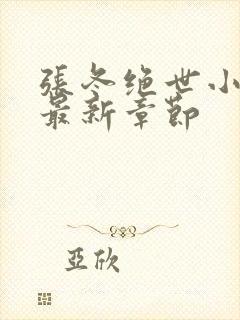 張冬绝世小
最新章節
亞欣